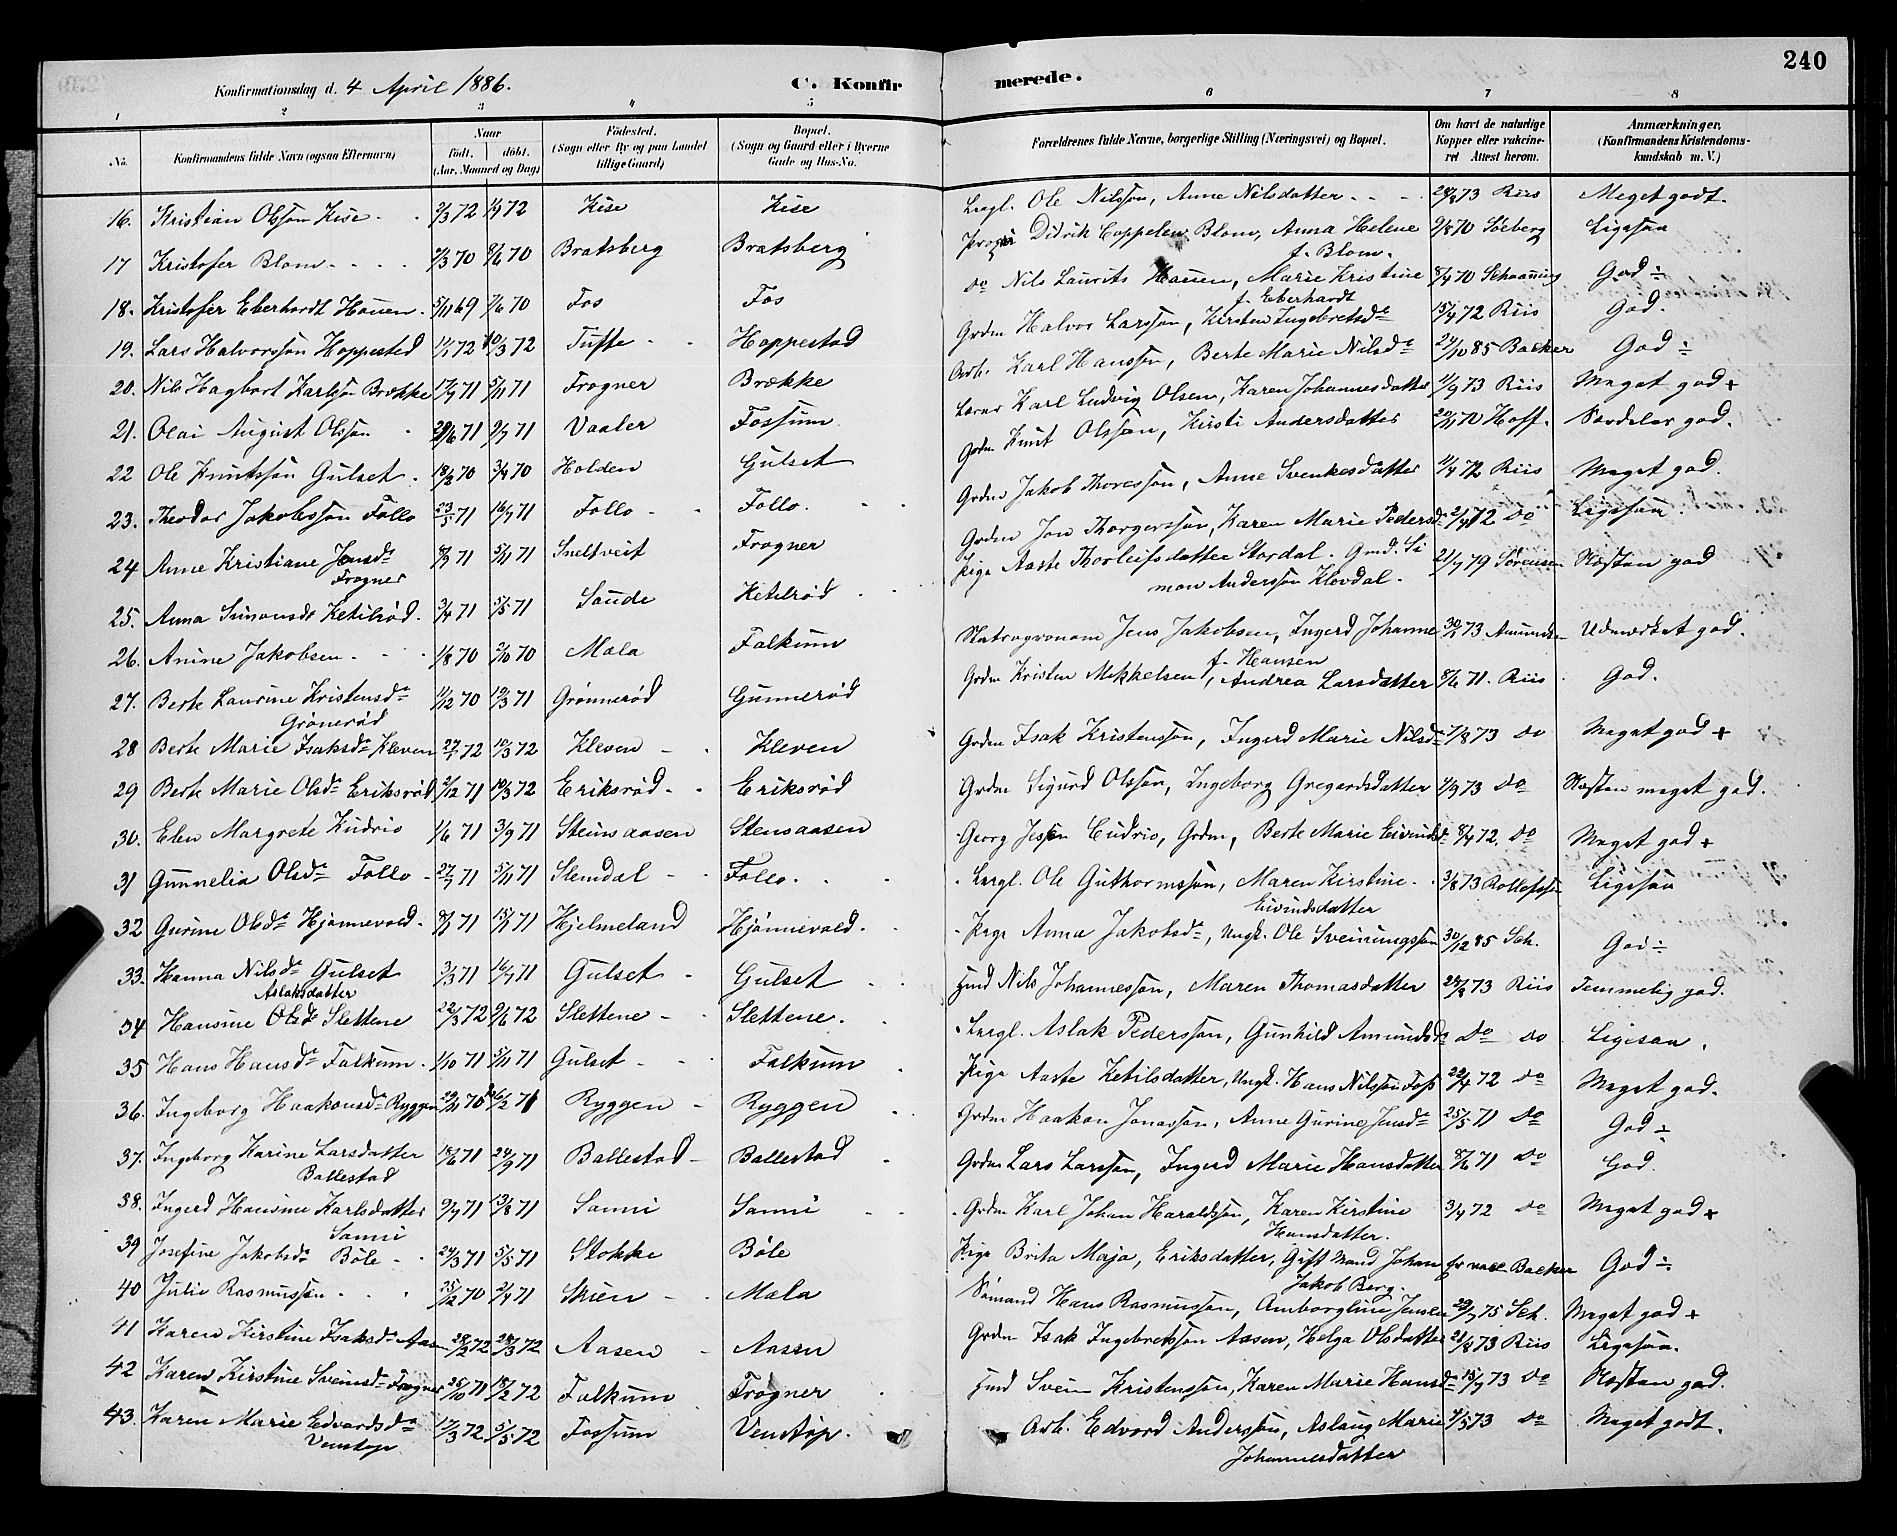 240
Konfirmationsdag d. 4 April 1886.
C. Konfirmerede.
1 2 3 4 5 6 7 8
No. | Konfirmandens fulde Navn (ogsaa Efternavn) | Naar født. døbt. (Aar, Maaned og Dag) | Fødested. (Sogn eller By og paa Landet tillige Gaard) | Bopæl. (Sogn og Gaard eller i Byerne Gade og Hus-No. | Forældrenes fulde Navne, borgerlige Stilling (Næringsvei) og Bopæl. | Om havt de naturlige Kopper eller vakcineret Attest herom. | Anmærkninger. (Konfirmandens Kristendomskundskab m. V.)
16. Kristian Olsson Kise 72 72 Kise Kise Ole Nilsson, Anne Nilsdatter 73 Riis Meget godt.
17 Kristofer Blom 70 70 Bratsberg Bratsberg Didrik Coppelen Blom, Anna Helene f. Blom. 70 Söeberg Ligesaa
18. Kristofer Eberhardt Houen 5/11 69 7/6 70 Fos Fos do Nils Laurits Houen, Marie Kristine f. Eberhardt 70 Schaaning God ÷
19. Lars Halvorsson Hoppestad 72 72 Tufte Hoppestad Grdm Halvor Larsson, Kirsten Ingebretsd. 15/4 72 Riis God.
20. Nils Hagbart Karlsön Brække 71 5/11 71 Frogner Brække Arb. Karl Hansson, Berte Marie Nilsd. 85 Backer God ÷
21. Olai August Olsson 71 71 Vaaler Fossum Karl Ludvig Olsen, Karen Johannesdatter 73 Riis Meget god +
22 Ole Knutsson Gulset 70 3/4 70 Holden Gulset Grdm Knut Olsson, Kirsti Andersdatter 70 Hoff. Særdeles god.
23. Theodor Jakobsson Follo 23/5 71 16/7 71 Follo Follo. Grdm Jakob Thoresson, Anne Svenkesdatter 72 Riis Meget god.
24 Anne Kristiane Jonsd. Frogner 71 5/11 71 Sneltveit Frogner Grdm Jon Thorgersson, Karen Marie Pedersd. 72 do Ligesaa.
25. Anna Simonsd. Ketilrød 3/4 71 5/5 71 Saude Ketilrød Pige Aaste Thorleifsdatter Stordal. Gmd. Simon Andersson Klovdal. 79 Sörensen Næsten god
26. Anine Jakobsen 1/8 70 2/10 70 Mæla Falkum Statsagronom Jens Jakobsen, Ingerd Johanne f. Hansen 73 Amundsen Udmærket god.
27. Berte Laurine Kristensd. Grönerød 11/12 70 12/3 71 Grönnerød Gunnerød Grdm Kristen Mekkelsen, Andrea Larsdatter 8/6 71. Riis God.
28 Berte Marie Isaksd. Kleven 27/1 72 10/3 72 Kleven Kleven Grdm Isak Kristensson, Ingerd Marie Nilsd. 7/8 73 do Meget god +
29 Berte Marie Olsd. Eriksrød 71 10/3 72 Eriksrød Eriksrød Grdm Sigurd Olsson, Ingeborg Gregardsdatter 73 do Næsten meget god.
30. Elen Margrete Kudrio 1/6 71 3/9 71 Stensaasen Stensaasen Georg Cudrio, Grdm, Berte Marie Eivindsd. 8/4 72. do Meget god +
31 Gunnelia Olsd. Follo 27/7 71 5/11 71 Slemdal Follo. Ole Guthormsson, Maren Kirstine Eivindsdatter 3/8 73 Rollefsen Ligesaa
32 Gurine Olsd. Hjönnevold. 71 71 Hjelmeland Hjönnevold. Pige Anna Jakobsd., Ungk. Ole Sveinungsson 30/12 85 Sch. God ÷
33. Hanna Nilsd. Gulset 3/3 71 16/7 71 Gulset Gulset Nils Johannesson, Maren Thomasdatter 73 Riis Temmelig god.
34 Hansine Olsd. Aslaksdatter Slettene 22/3 72 9/6 72 Slettene Slettene. Aslak Pedersson, Gunhild Amundsd. do do Ligesaa.
35 Hans Hansd. Falkum 1/10 71 5/11 71 Gulset Falkum Pige Aaste Ketilsdatter, Ungk. Hans Nilssön Foss 22/4 72 do Meget god.
36. Ingeborg Haakonsd. Ryggen 29/11 70 71 Ryggen Ryggen Grdm Haakon Jonasson, Anne Gurine Jensd. 25/5 71 do God ÷
37. Ingeborg Karine Larsdatter Ballestad 71 24/9 71 Ballestad Ballestad Grdm Lars Larsson, Ingerd Marie Hansdatter 8/6 71 do God.
38. Ingerd Hansine Karlsdatter Sanni 71 13/8 71 Sanni Sanni Grdm Karl Johan Haraldsson, Karen Kirstine Hansdatter. 3/4 72 do Meget god +
39 Josefine Jakobsd. Böle 24/3 71 5/5 71 Stokke Böle Pige Brita Maja Eriksdatter, Gift Mand Johan Jakob Berg. Backer God ÷
40 Julie Rasmussen 25/12 70 2/4 71 Skien Mæla Sömand Hans Rasmussen, Amborgline Jensen 75 Sch. Meget god +
41 Karen Kirstine Isaksd. Aasen 28/2 72 24/3 72 Aasen Aasen Grdm Isak Ingebretsson Aasen, Helga Olsdatter 73 Riis Ligesaa.
42 Karen Kirstine Sveinsd. Frogner 25/10 71 18/2 72 Falkum Frogner Svein Kristensson, Karen Marie Hansd. 73 do Næsten god.
43. Karen Marie Edvardsd. Venstøp 17/3 72 5/5 72 Fossum Venstøp. Arb. Edvard Andersson, Aslaug Marie Johannesdatter 73 do Meget godt.